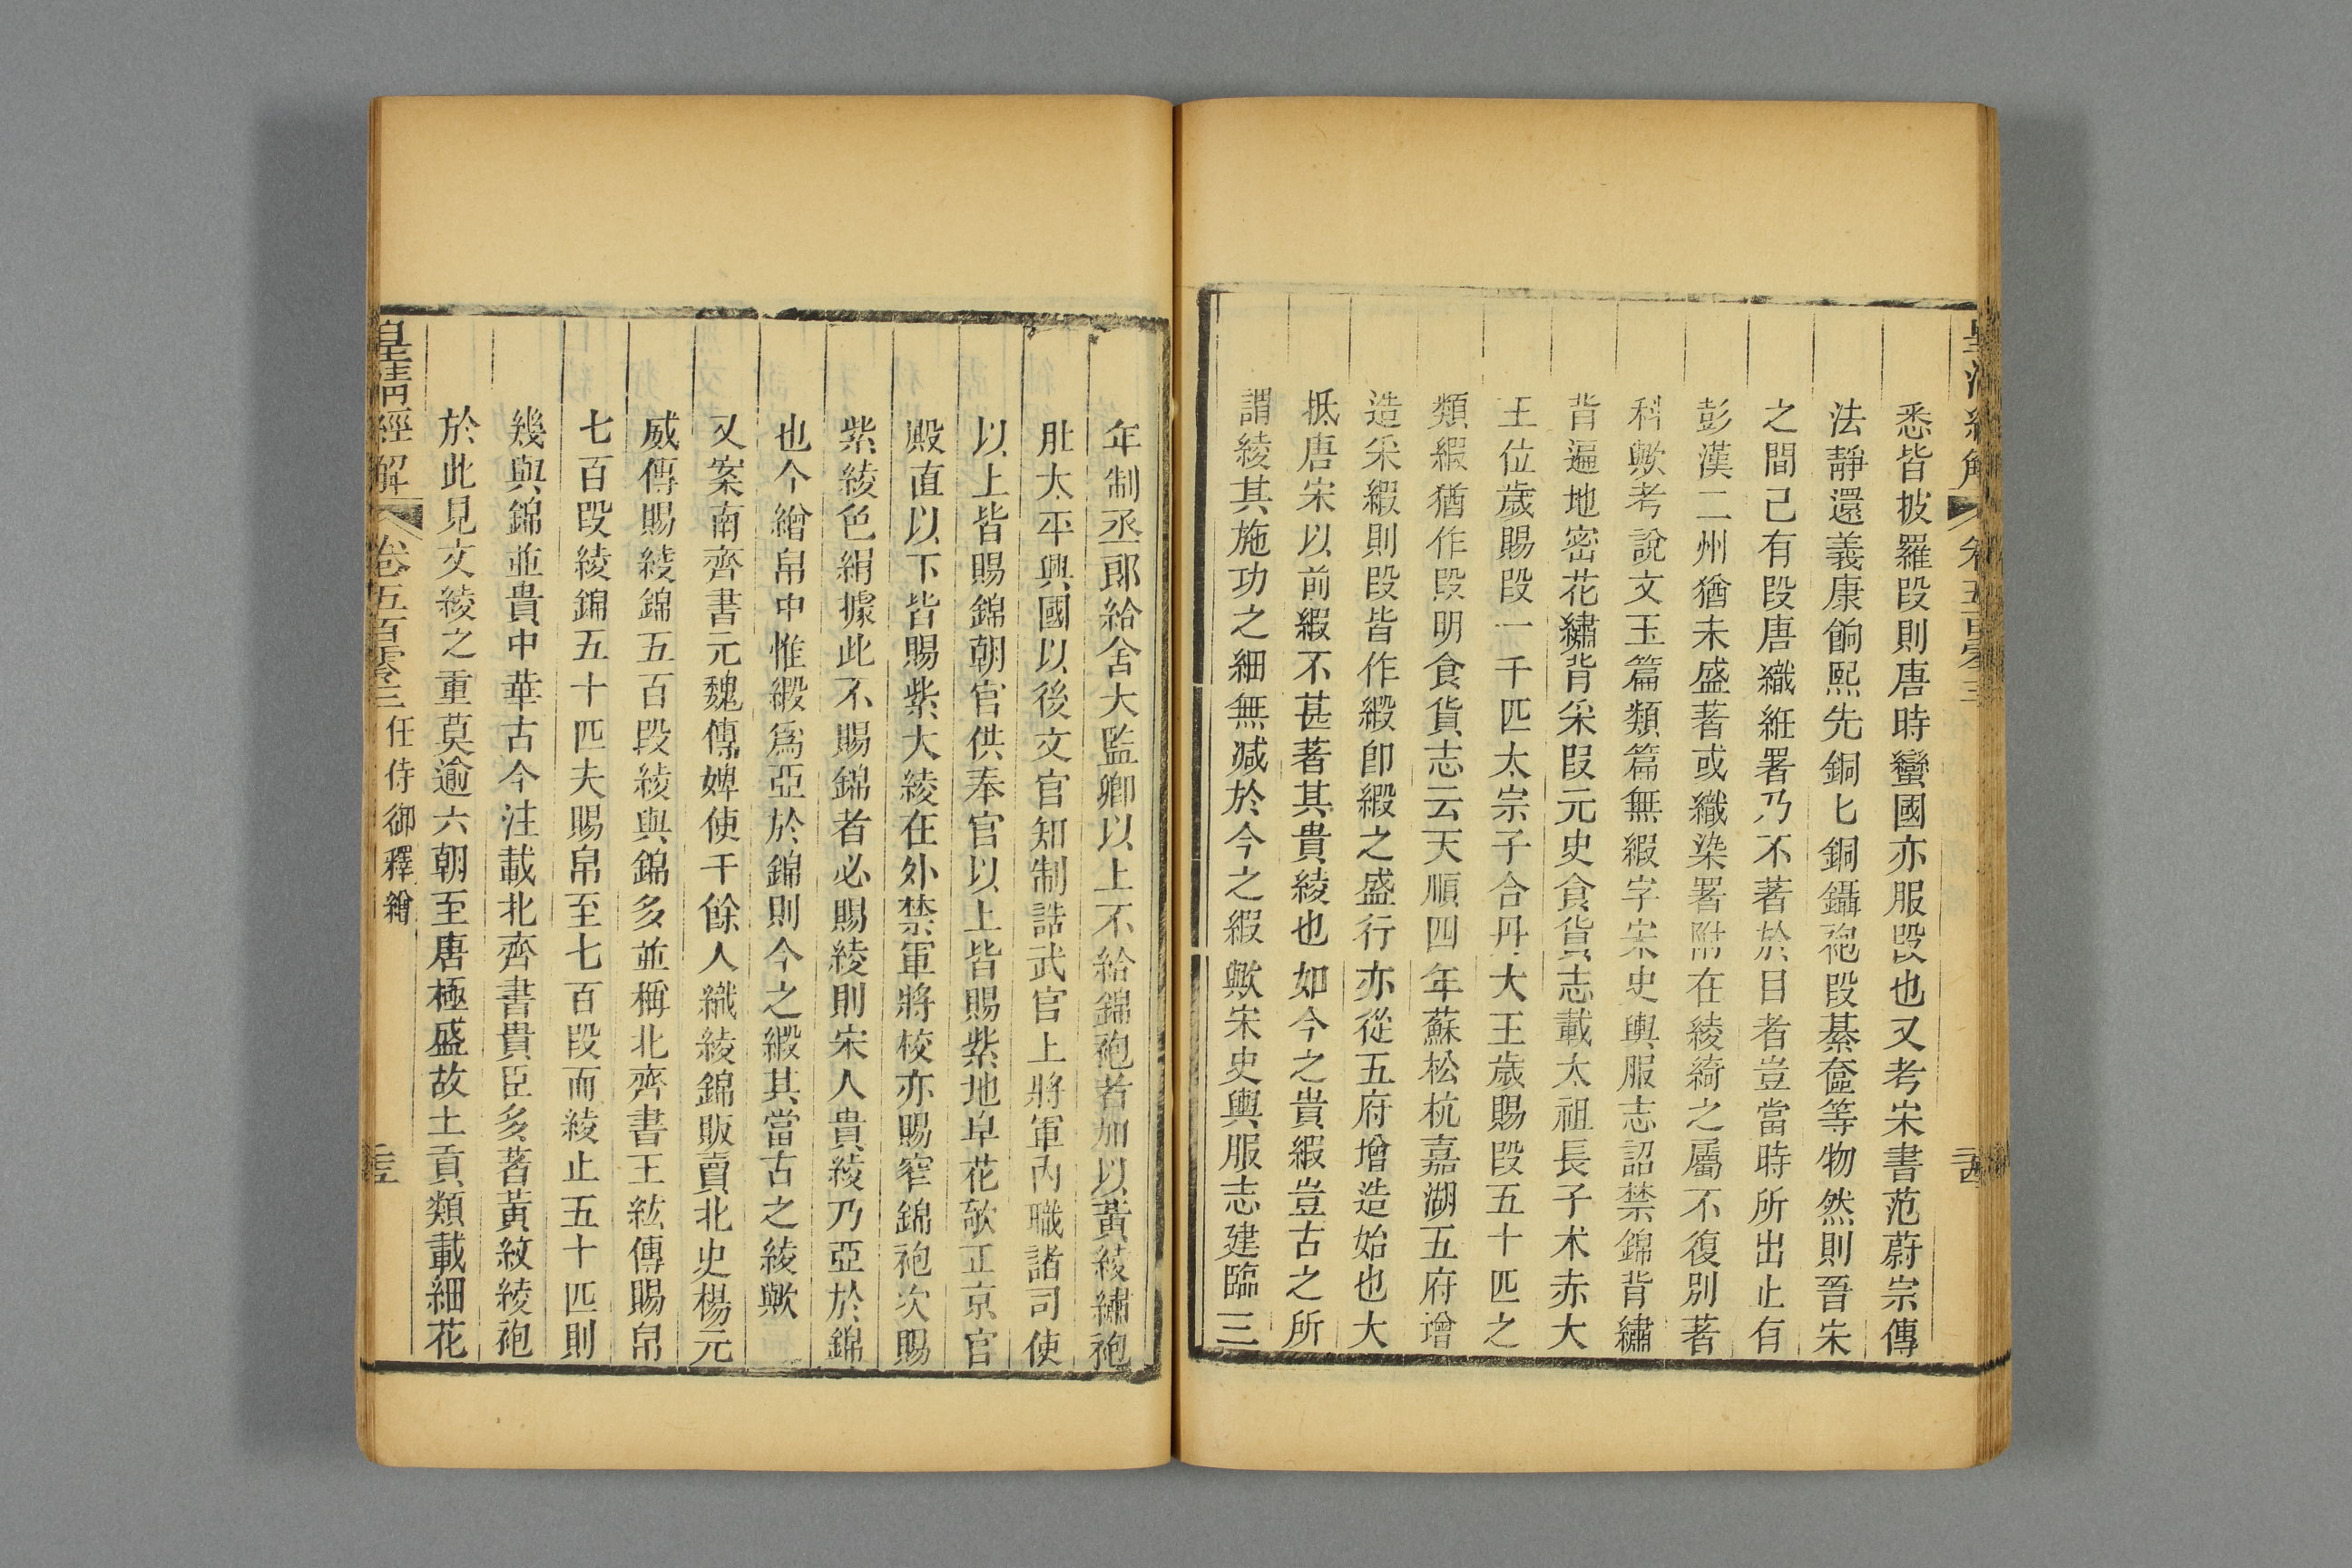 悉皆披羅段則唐時蠻國亦服段也又考宋書范蔚宗傳
法靜還義康餉熙先銅匕銅鑷袍段棊奩等物然則晉宋
之間已有段唐織絍署乃不著於目者豈當時所出止有
彭漢二州猶未盛著或織染署附在綾綺之屬不復別著
科歟考說文玉篇類篇無緞字宋史輿服志詔禁錦背繡
背遍地密花繡背采段元史食貨志載太祖長子朮赤大
王位歲賜段一千匹太宗子合丹大王歲賜段五十匹之
類緞猶作段明食貨志云天順四年蘇松杭嘉湖五府增
造采緞則段皆作緞卽緞之盛行亦從五府增造始也大
抵唐宋以前緞不甚著其貴綾也如今之貴緞豈古之所
謂綾其施功之細無減於今之緞歟宋史輿服志建隆三
年制丞郎給舍大監卿以上不給錦袍者加以黃綾繡袍
肚太平興國以後文官知制誥武官上將軍內職諸司使
以上皆賜錦朝官供奉官以上皆賜紫地皁花欹正京官
殿直以下皆賜紫大綾在外禁軍將校亦賜窄錦袍次賜
紫綾色絹據此不賜錦者必賜綾則宋人貴綾乃亞於錦
也今繒帛中惟緞爲亞於錦則今之緞其當古之綾歟
又案南齊書元魏傳婢使千餘人織綾錦販賣北史楊元
威傳賜綾錦五百段綾與錦多並稱北齊書王紘傳賜帛
七百段綾錦五十匹夫賜帛至七百段而綾止五十匹則
幾與錦並貴中華古今注載北齊書貴臣多著黃紋綾袍
於此見文綾之重莫逾六朝至唐極盛故土貢類載細花
皇清經解 卷五百零三 任侍御釋繒